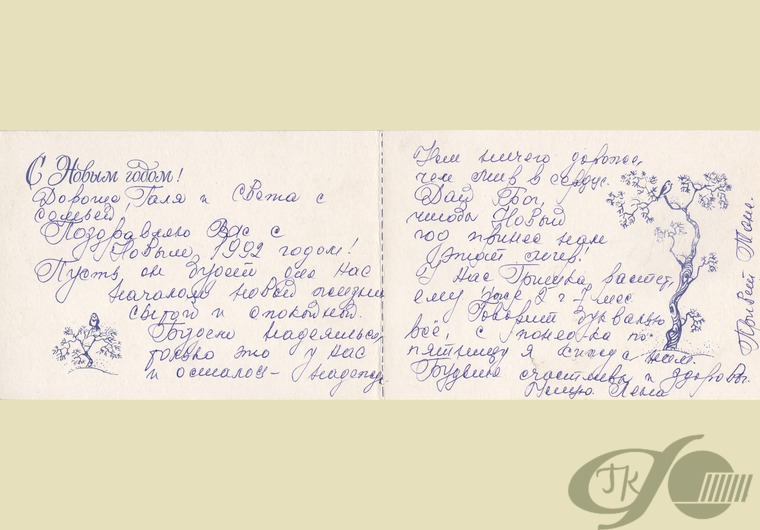 С Новым годом!
Дорогие Галя и Света с
семьей!
Поздравляю Вас с
Новым, 1992 годом!
Пусть он будет для нас
началом новой жизни
сытой и спокойной.
Будем надеяться,
только это у нас
и осталось - надежда.
Нет ничего дороже,
чем мир в сердце.
Дай Бог,
чтобы Новый
год принес нам
этот мир!
У нас Гришка растет,
ему уже 2 г 7 мес.
Говорит буквально
всё, с понед-ка по
пятницу я сижу с ним.
Будьте счастливы и здоровы.
Целую Лена
Привет Тане.
ГК